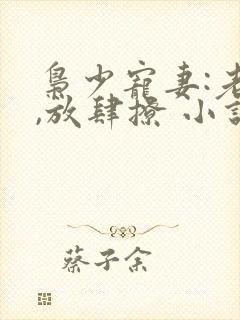 梟少寵妻:老
,放肆撩 小說
蔡子余